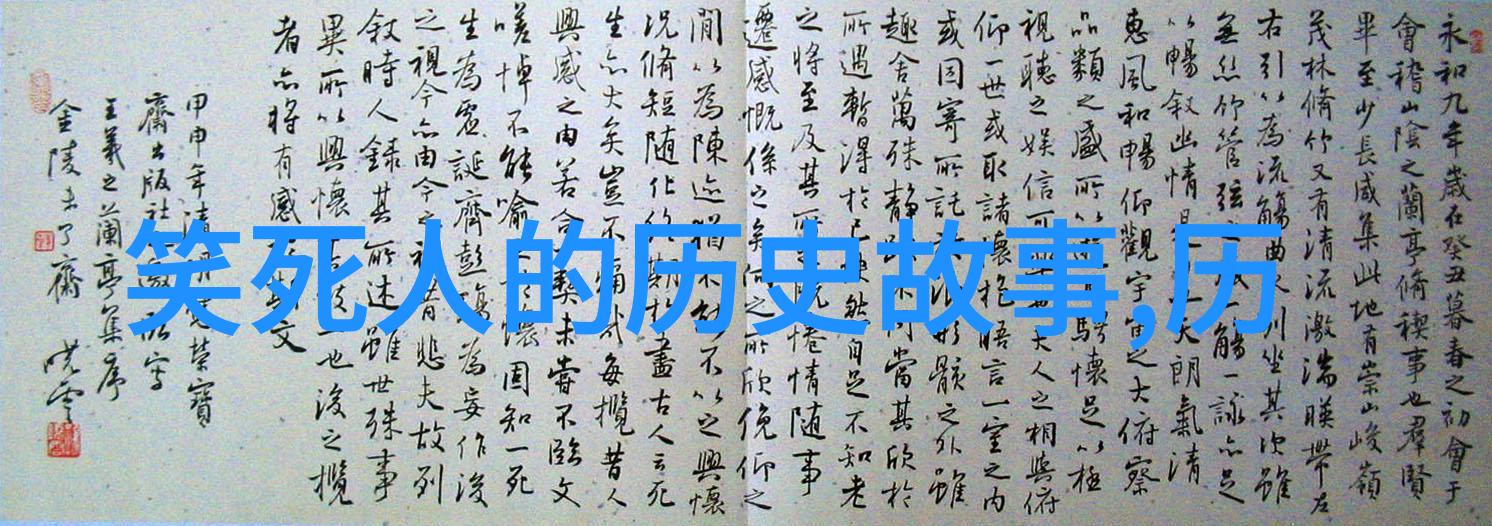 永和九年歲在癸丑暮春之初會于
會稽山陰之蘭亭脩禊事也群賢
畢至少長咸集此地有崇山峻嶺
茂林脩竹又有清流激湍暎帶左
右引以為流觴曲水列坐其次雖
無絲竹管弦之盛一觴一詠亦足
以暢敘幽情是日也天朗氣清
惠風和暢仰觀宇宙之大俯察
品類之盛所以騁懷足以極
視聽之娛信可樂也夫人之相與俯
仰一世或取諸懷抱悟言一室之內
或因寄所託放浪形骸之外雖
趣舍萬殊靜躁不同當其欣於
所遇暫得於己快然自足不知老
之將至及其所之既惓情隨事
遷感慨係之矣向之所欣俛仰之
間以為陳迹猶不能不以之興懷
況脩短隨化終期於盡古人云死
生亦大矣豈不痛哉每攬昔人
興感之由若合一契未嘗不臨文
嗟悼不能喻之於懷固知一死
生為虛誕齊彭殤為妄作後
之視今亦由今之視昔悲夫故列
敘時人錄其所述雖世殊事
異所以興懷其致一也後之攬
者亦將有感於斯文
甲申年清明榮寶
齋出版社
王羲之蘭亭集序
金陵未了齋
笑死人的历史故事,历